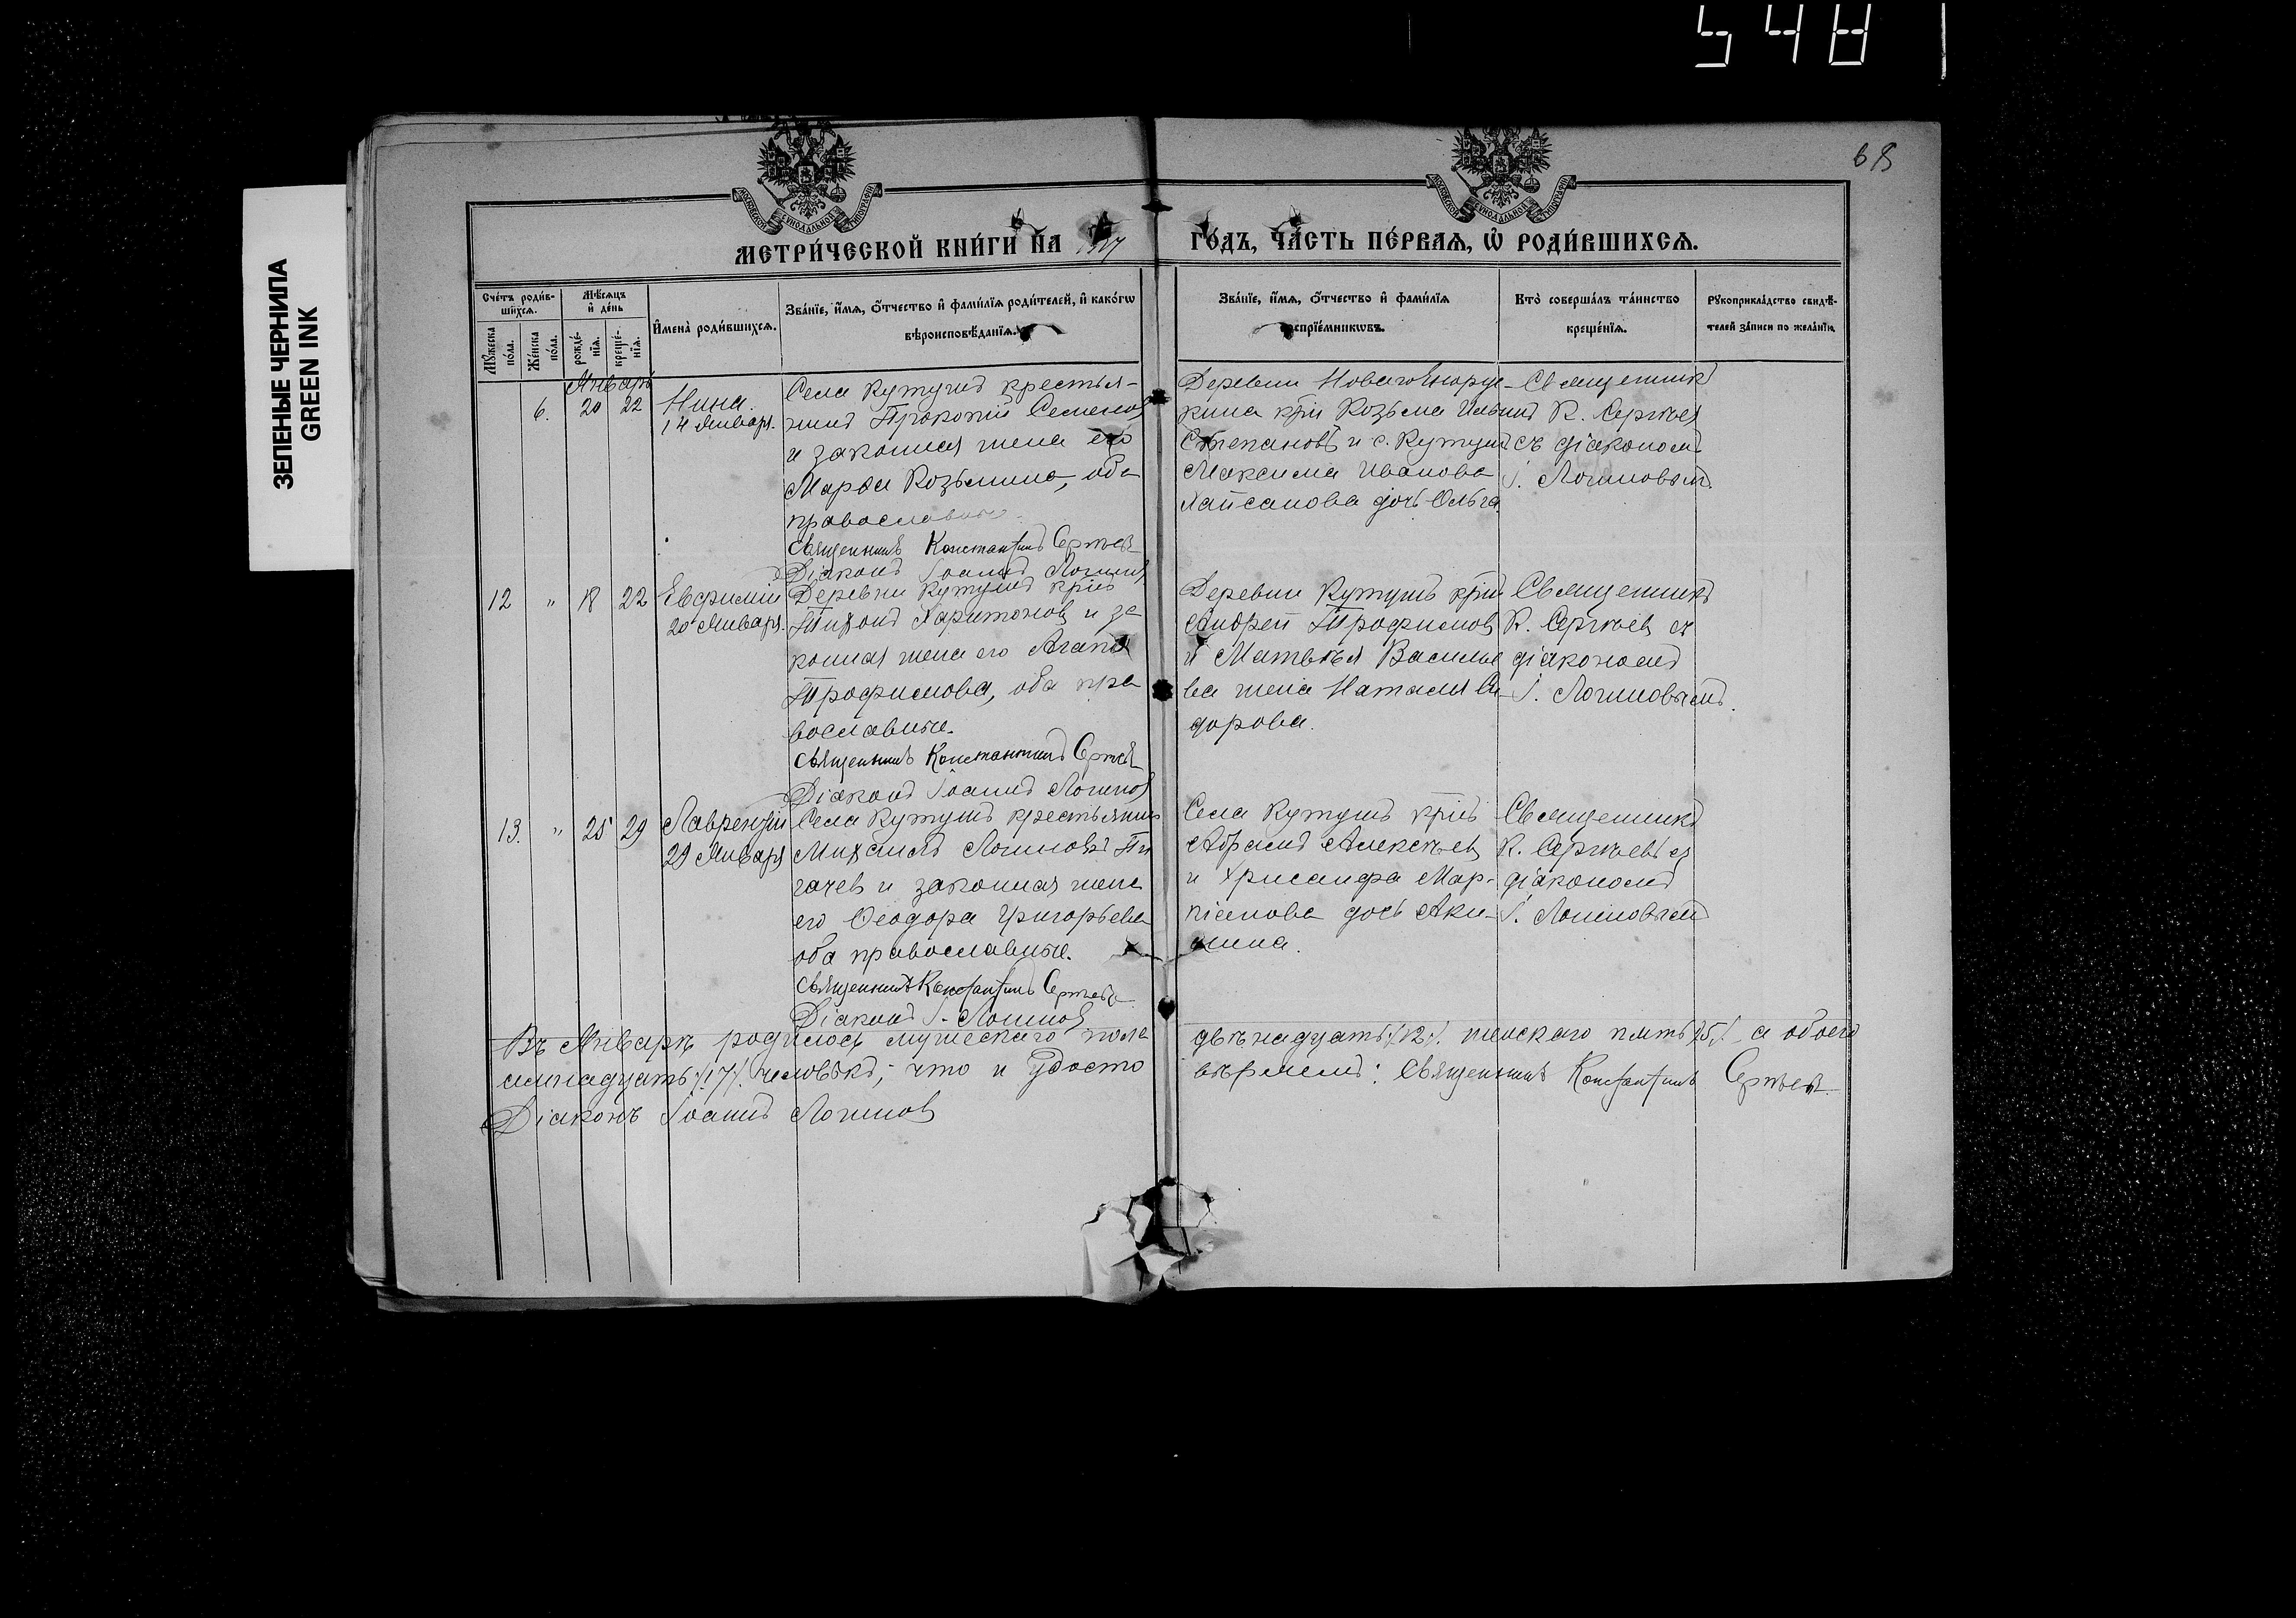 5481
ЗЕЛЕНЫЕ ЧЕРНИЛА
GREEN INK
68
МЕТРИ́ЧЕСКОЙ КНИ́ГИ НА
ГО́ДЪ, ЧА́СТЬ ПЕ́РВАѦ, Ѡ҆ РОДИ́ВШИХСѦ.
Сче́тъ роди́в-
шихсѧ.
Мѣ́сѧцъ
и҆ де́нь
Мꙋ́жеска
по́ла.
Же́нска
по́ла.
рожде́-
нїѧ.
креще́-
нїѧ.
И҆мена̀ роди́вшихсѧ.
Зва́нїе, и҆́мѧ, ѻ҆́тчество и҆ фами́лїѧ роди́телей, и҆ како́гѡ
вѣроисповѣ́данїѧ.
Зва́нїе, и҆́мѧ, ѻ҆́тчество и҆ фами́лїѧ
воспрїе́мникѡвъ.
Кто̀ соверша́лъ та́инство
креще́нїѧ.
Рꙋкоприкла́дство свидѣ́-
телей за́писи по жела́нїю.
Январь
6. 20 22
Нина
14 Января.
Села Кутушъ крестья-
нинъ Прокопій Семеновъ
и законная жена его
Марѳа Козьмина, оба
православные.
Священникъ Константинъ Сергѣевъ
Діаконъ Іоаннъ Логиновъ
Деревни
кина кр̅нъ Козьма Ильинъ
Степановъ и с. Кутушъ
Максима Иванова
дочь Ольга.
Священникъ
К. Сергѣевъ
съ діакономъ
І. Логиновымъ.
12 " 18 22
Евфимій
20 Января.
Деревни Кутушъ кр̅нъ
Тихонъ Харитоновъ и за
конная жена его Агаѳія
Трофимова, оба пра
вославные.
Священникъ Константинъ Сергѣевъ
Діаконъ Іоаннъ Логиновъ
Деревни Кутушъ кр̅нъ
Андрей Трофимовъ
и Матвѣя Василье
ва жена Наталия Си-
дорова.
Священникъ
К. Сергѣевъ съ
діакономъ
І. Логиновымъ.
13. " 25 29
Лаврентій
29 Января
Села Кутушъ крестьянинъ
Михаилъ Логиновъ Пи
гачев и законная жена
его Ѳеодора Григорьева
оба православные.
Священникъ Константинъ Сергѣевъ
Діаконъ І. Логиновъ
Села Кутушъ кр̅нъ
Абрамъ Алексѣевъ
и Хрисанфа Мар-
кіанова дочь Аки-
лина.
Священникъ
К. Сергѣевъ съ
діакономъ
І. Логиновымъ
Въ Январѣ родилось мужескаго пола двѣнадцать /12/. женскаго пять /5/. а обоего
семнадцать /17/. человѣкъ; что и удосто вѣряемъ: Священникъ Константинъ Сергѣевъ
Діаконъ Іоаннъ Логиновъ